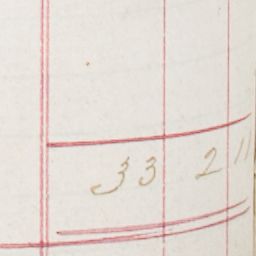 33 2 11